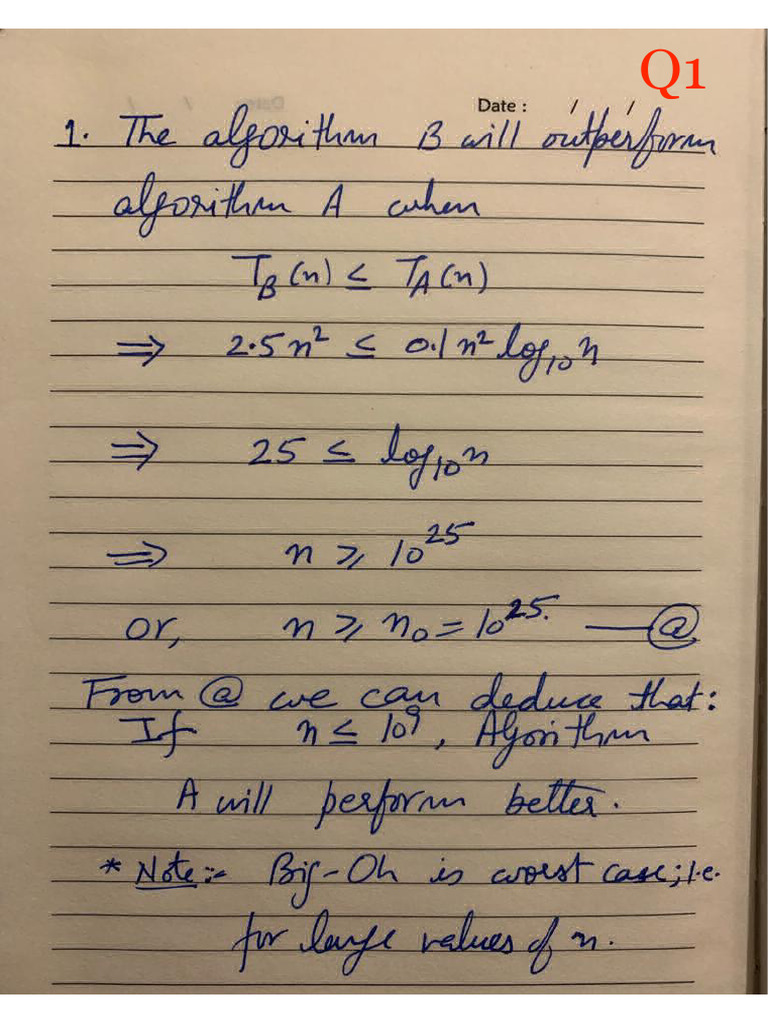 Q1
Date : / /
1. The algorithm B will outperform
algorithm A when
T_B(n) ≤ T_A(n)
⇒ 2.5n² ≤ 0.1n² log₁₀n
⇒ 25 ≤ log₁₀n
⇒ n ≥ 10²⁵
or, n ≥ n₀ = 10²⁵. — ⓐ
From ⓐ we can deduce that:
If n ≤ 10⁹, Algorithm
A will perform better.
* Note:- Big-Oh is worst case; i.e.
for large values of n.